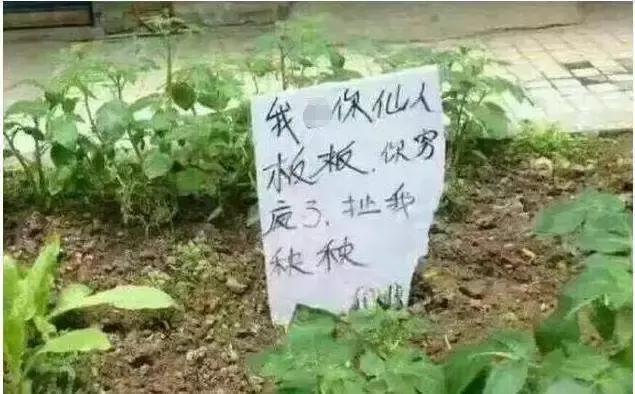 我 你仙人
板板.你穷
疯了.扯我
秧秧